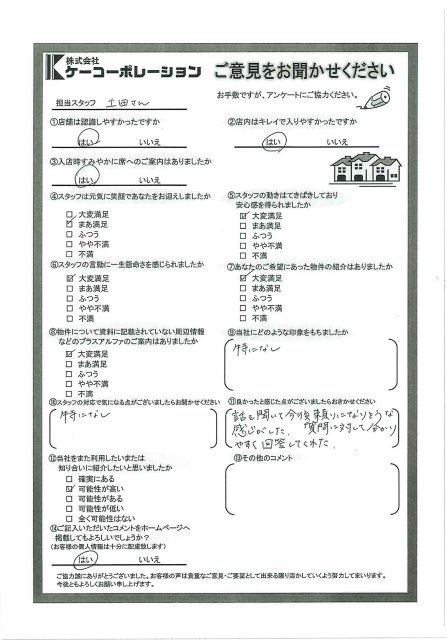 株式会社
ケーコーポレーション
ご意見をお聞かせください
担当スタッフ 土田さん
お手数ですが、アンケートにご協力ください。
①店舗は認識しやすかったですか
はい いいえ
②店内はキレイで入りやすかったですか
はい いいえ
③入店時すみやかに席へのご案内はありましたか
はい いいえ
④スタッフは元気に笑顔であなたをお迎えしましたか
大変満足
まあ満足
ふつう
やや不満
不満
⑤スタッフの動きはてきぱきしており
安心感を得られましたか
大変満足
まあ満足
ふつう
やや不満
不満
⑥スタッフの言動に一生懸命さを感じられましたか
大変満足
まあ満足
ふつう
やや不満
不満
⑦あなたのご希望にあった物件の紹介はありましたか
大変満足
まあ満足
ふつう
やや不満
不満
⑧物件について資料に記載されていない周辺情報
などのプラスアルファのご案内はありましたか
大変満足
まあ満足
ふつう
やや不満
不満
⑨当社にどのような印象をもちましたか
特になし
⑩スタッフの対応で気になる点がございましたらお聞かせください
特になし
⑪良かったと感じた点がございましたらお聞かせください
話を聞いて今後頼りになりそうな
感じがした。質問に対して分かり
やすく回答してくれた。
⑫当社をまた利用したいまたは
知り合いに紹介したいと思いましたか
確実にある
可能性が高い
可能性がある
可能性が低い
全く可能性はない
⑬その他のコメント
⑭ご記入いただいたコメントをホームページへ
掲載してもよろしいでしょうか?
(お客様の個人情報は十分に配慮致します)
はい いいえ
ご協力誠にありがとうございました。お客様の声は貴重なご意見・ご要望として出来る限り活かしていくよう努力してまいります。
今後ともよろしくお願い申し上げます。